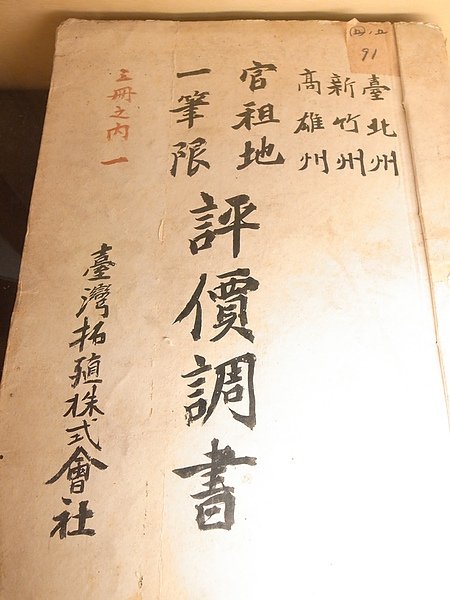 臺北州
新竹州
高雄州
官租地
一筆限
評價調書
三冊之內 一
臺灣拓殖株式會社
91